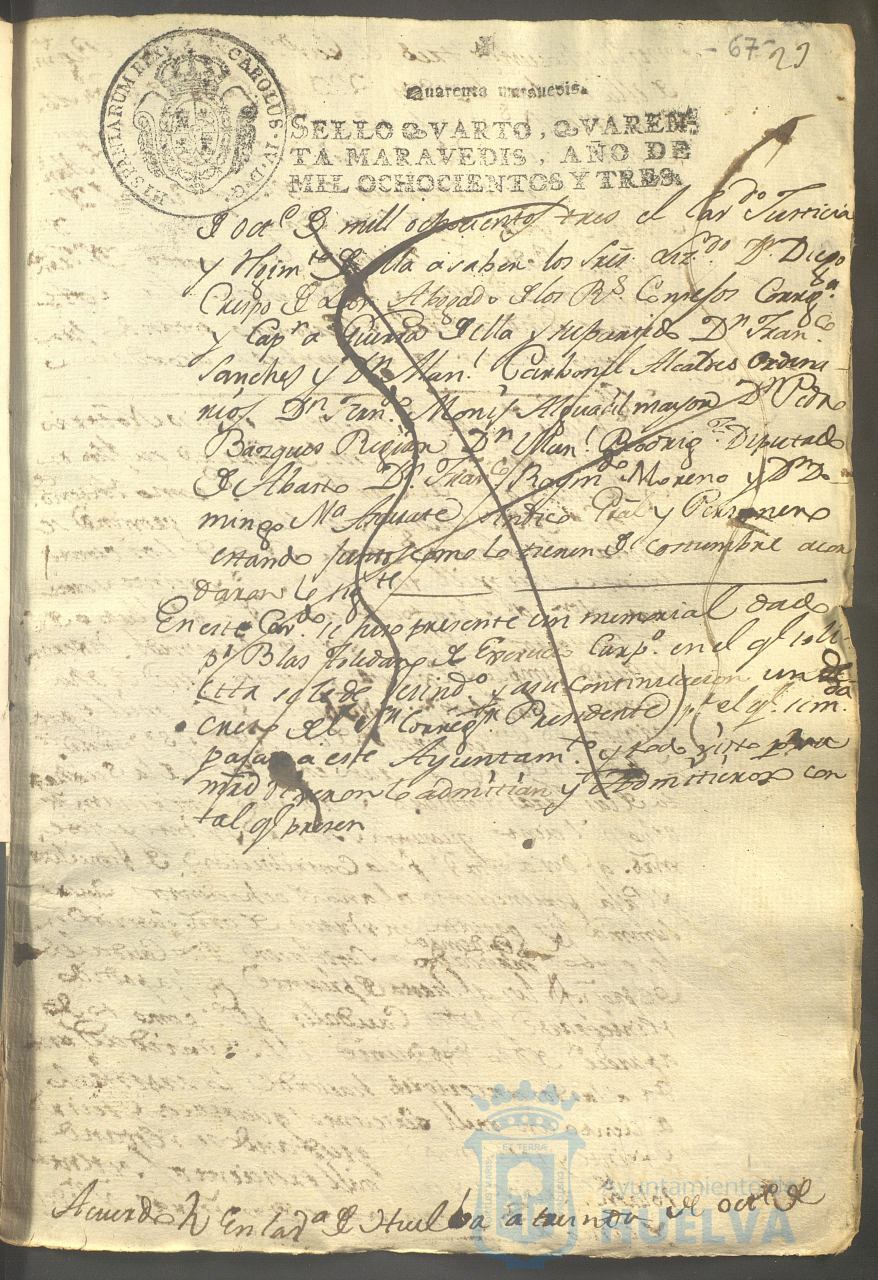 -67- 29
HISPANIARUM REX CAROLUS·IV·D·G·
Quarenta marauedis.
SELLO QVARTO, QVAREN-
TA MARAVEDIS, AÑO DE
MIL OCHOCIENTOS Y TRES.
D octe D mill ochocientos tres el Cavdo Justicia
y Rejimto de ella a saber los Sres Lizdo Dn Diego
Crespo de Abogado de los Rs Consejos Corrxor
y Capn a Guerra de ella y su partido Dn Franco
Sanches y Dn Manl Carbonel Alcaldes Ordina-
rios Dn Franco Alguacil mayor Dn Pedro
Bazques Regidor Dn Manl Rodrigz Diputado
de Abasto Dn Franco Raymdo Moreno y Dn Do-
mingo Ma Sindico Pral y Personero
estando juntos como lo tienen de costumbre acor
daron lo sigte
En este Cavdo se hizo presente un memorial dado
pr Blas Toledano de Exercicio Carpo en el qe soli-
cita se le de vesindo y a su continuacion un de
creto del Sr Corregr Presidente pr el qe se m.
pasar a este Ayuntamto y todo visto pr sus
mrds dixeron lo admitian y admitieron con
tal qe presen
Acuerdo En la va de Huelba a treinta de octe de
Ayuntamiento de
HUELVA